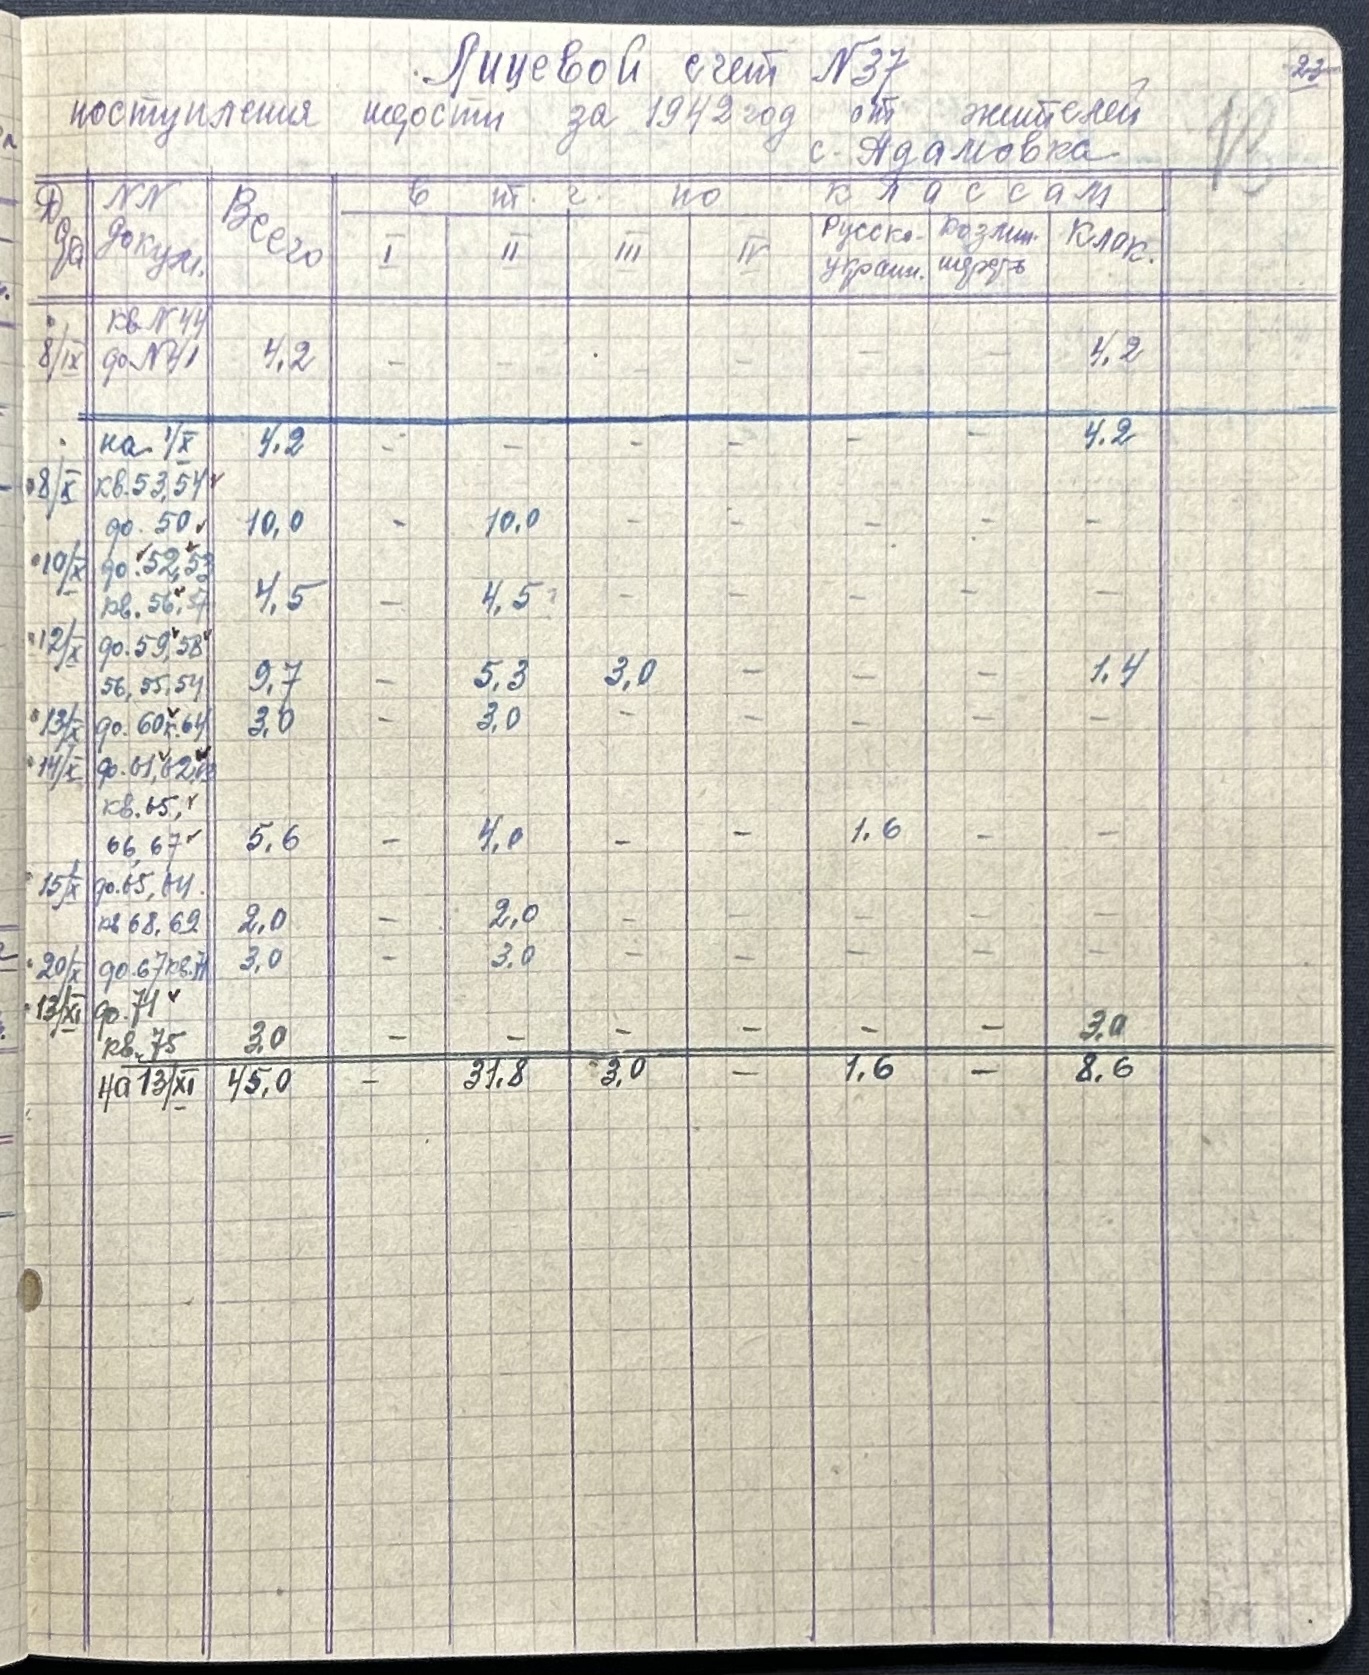 23
Лицевой счет N37
поступления шерсти за 1942 год от жителей
с. Адамовка
Дода NN докум. Всего в т. ч. по классам
I II III IV Русско-украин. козлин. шерсть Клок.
кв. N 44
8/IX до N 41 4,2 – – – – – 4,2
на 1/X 4,2 – – – – – – 4,2
8/X кв. 53, 54
до. 50 10,0 – 10,0 – – – – –
10/X до. 52, 53
кв. 56, 57 4,5 – 4,5 – – – – –
12/X до. 59, 58
56, 55, 54 9,7 – 5,3 3,0 – – – 1,4
13/X до. 60 к. 64 3,0 – 3,0 – – – – –
14/X до. 61, 62, 63
кв. 65,
66, 67 5,6 – 4,0 – – 1,6 – –
15/X до. 65, 64.
кв 68, 69 2,0 – 2,0 – – – – –
20/X до. 67 кв. 71 3,0 – 3,0 – – – – –
13/XI до. 71
кв. 75 3,0 – – – – – – 3,0
на 13/XI 45,0 – 31,8 3,0 – 1,6 – 8,6